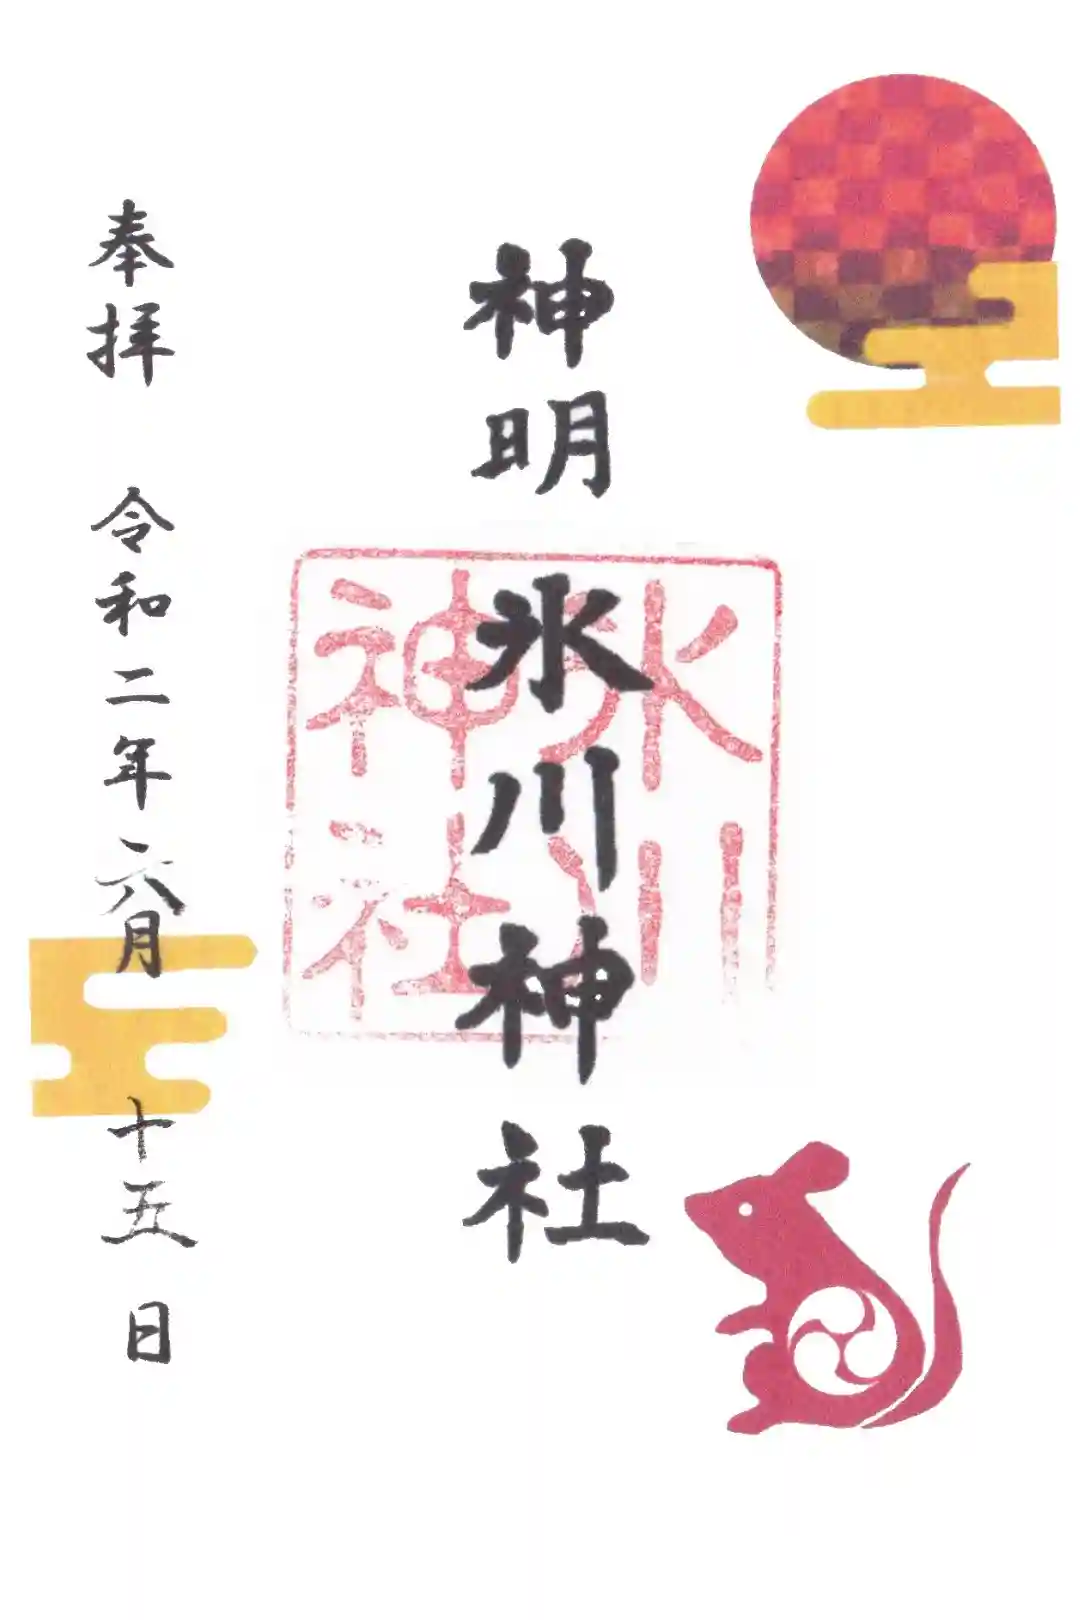 神明氷川神社
氷川
神社
奉拝 令和二年六月十五日